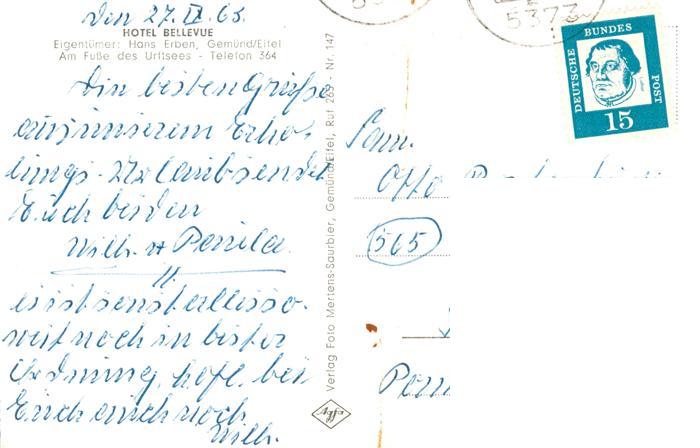 den 27. IX. 63.
HOTEL BELLEVUE
Eigentümer: Hans Erben, Gemünd/Eifel
Am Fuße des Urftsees - Telefon 364
Die besten Grüße
aus unserem Erho-
lungs-Urlaub sendet
Euch beiden
Wilh. u.
es ist sonst alles so-
weit noch in bester
Ordnung, hoffl. bei
Euch auch noch
Wilh.
Verlag Foto Mertens-Saurbier, Gemünd/Eifel, Ruf 265 - Nr. 147
Agfa
5373
DEUTSCHE BUNDESPOST
15
Fam.
Otto
565